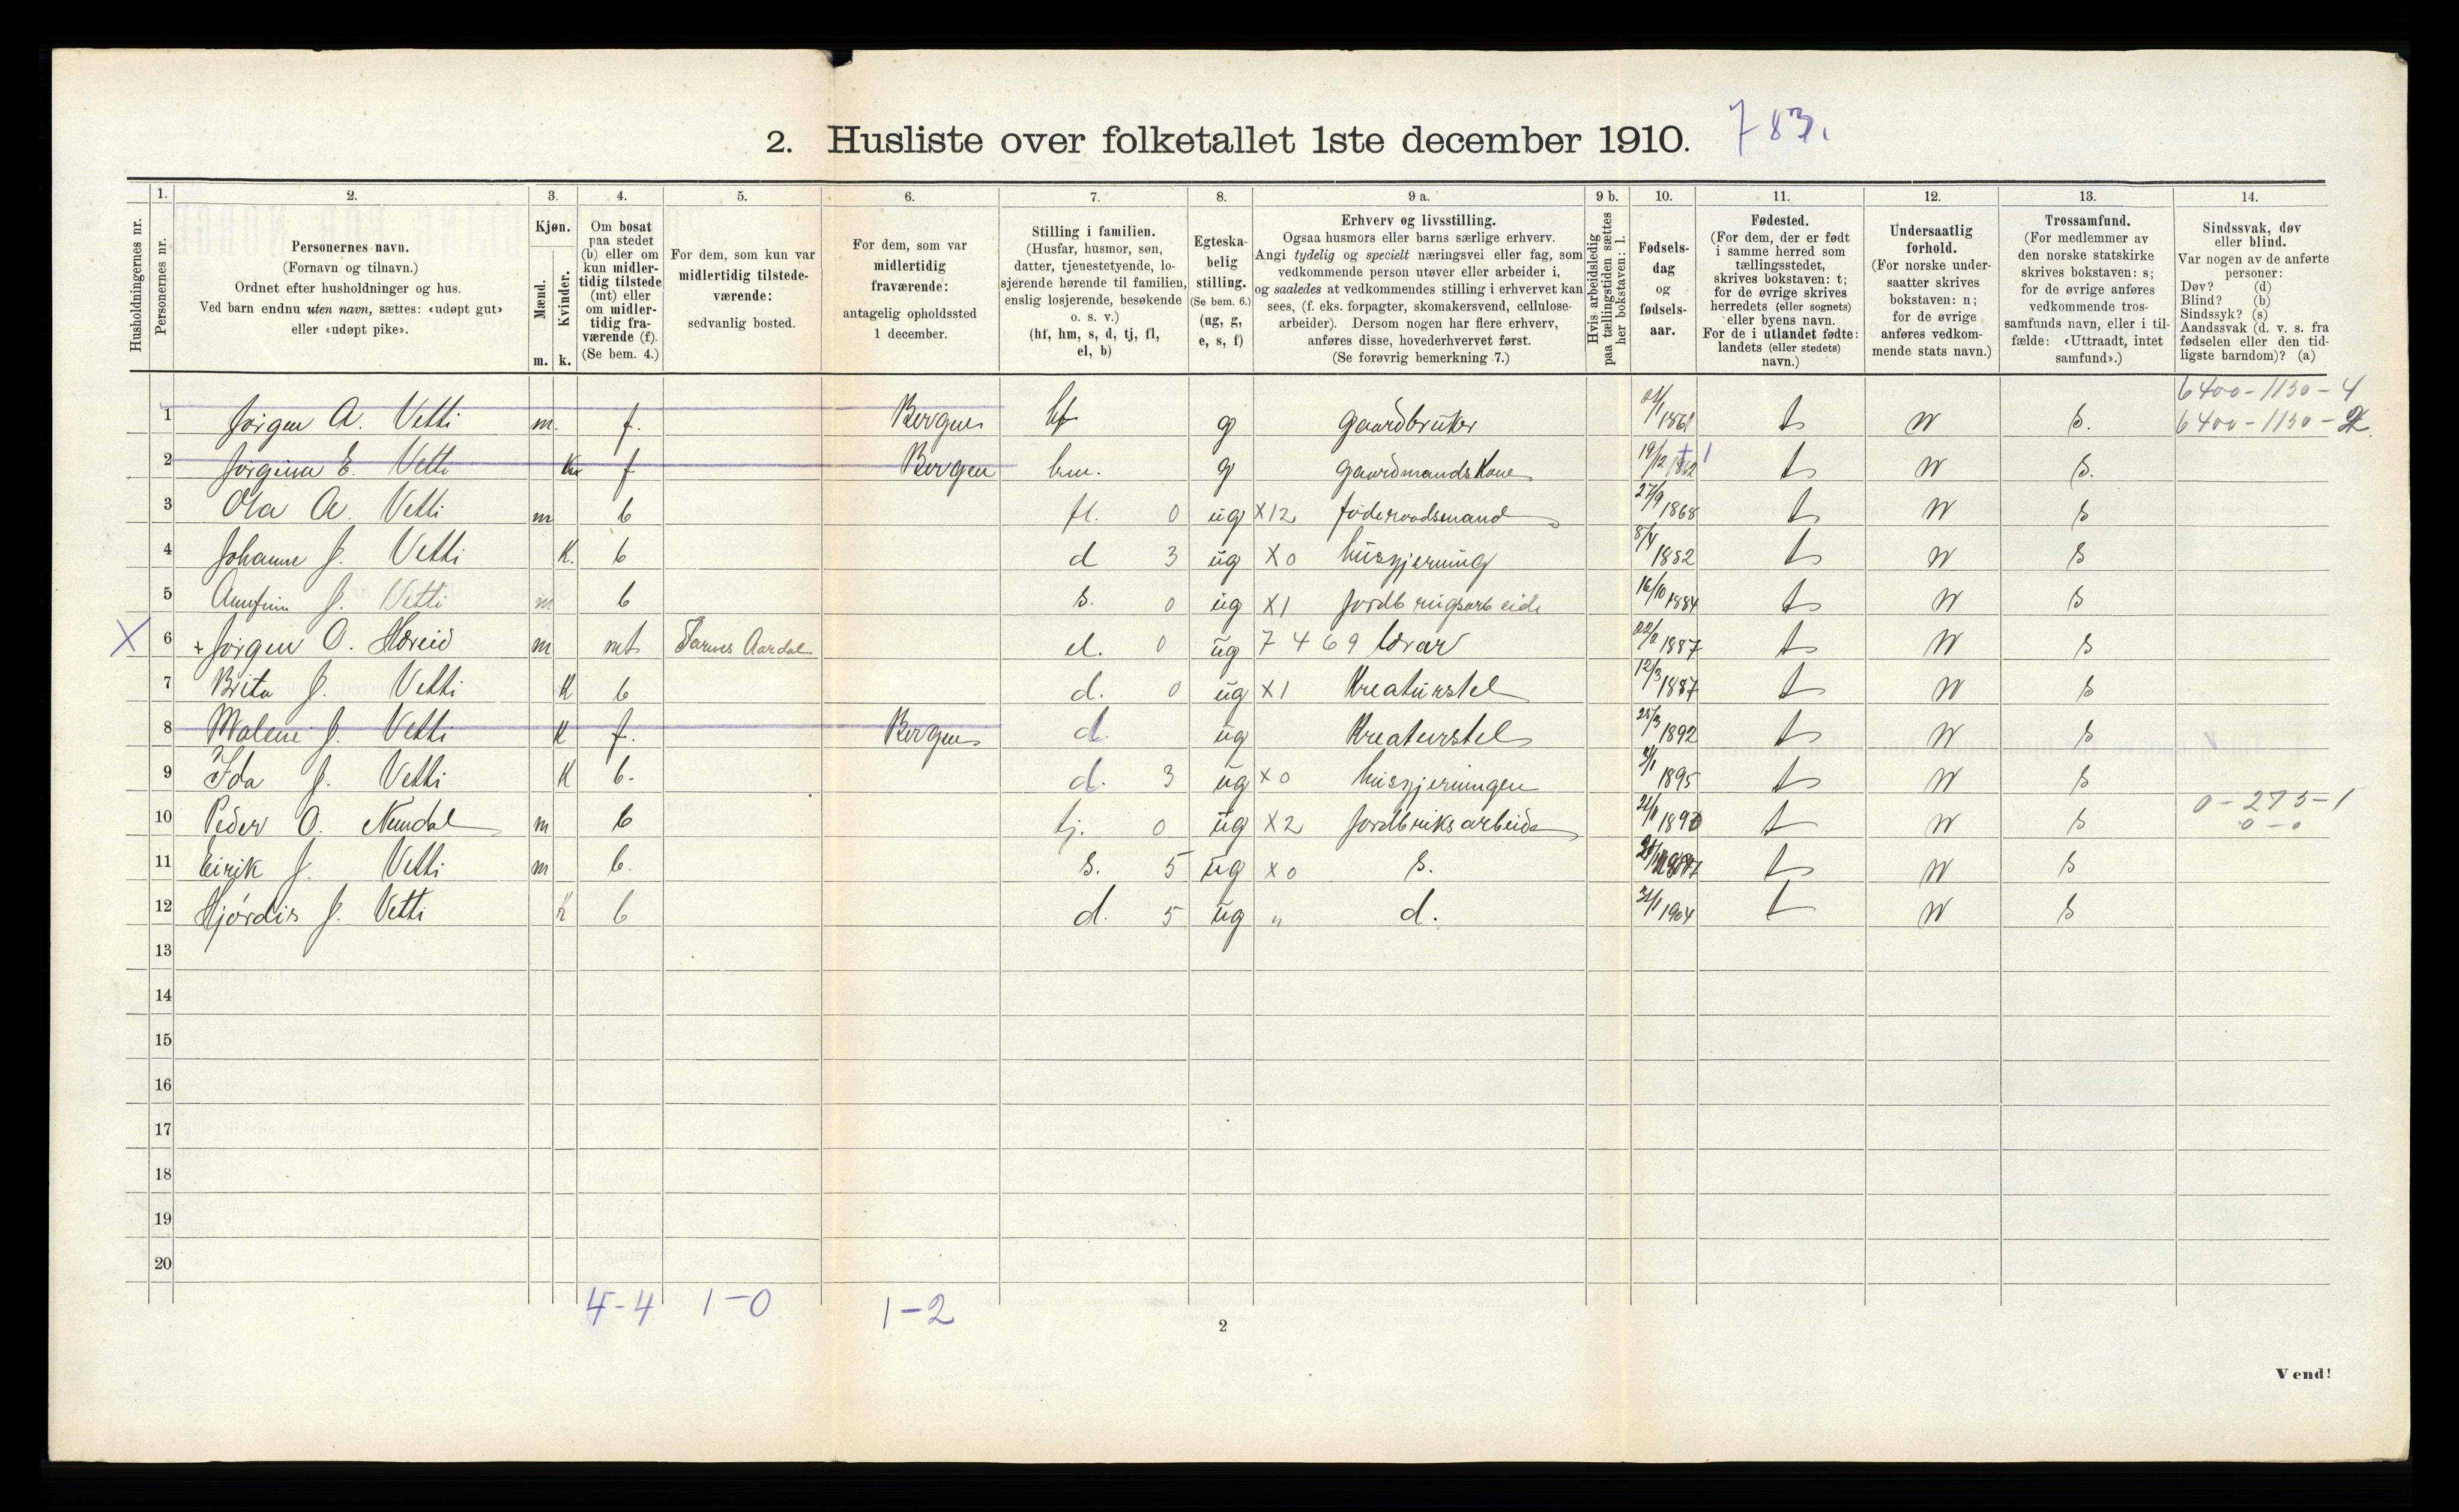 2. Husliste over folketallet 1ste december 1910. 783.
1. 2. 3. 4. 5. 6. 7. 8. 9 a. 9 b. 10. 11. 12. 13. 14.
Husholdningernes nr.
Personernes nr.
Personernes navn.
(Fornavn og tilnavn.)
Ordnet efter husholdninger og hus.
Ved barn endnu uten navn, sættes: «udøpt gut»
eller «udøpt pike».
Kjøn.
Mænd.
Kvinder.
m. k.
Om bosat
paa stedet
(b) eller om
kun midler-
tidig tilstede
(mt) eller
om midler-
tidig fra-
værende (f).
(Se bem. 4.)
For dem, som kun var
midlertidig tilstede-
værende:
sedvanlig bosted.
For dem, som var
midlertidig
fraværende:
antagelig opholdssted
1 december.
Stilling i familien.
(Husfar, husmor, søn,
datter, tjenestetyende, lo-
sjerende hørende til familien,
enslig losjerende, besøkende
o. s. v.)
(hf, hm, s, d, tj, fl,
el, b)
Egteska-
belig
stilling.
(Se bem. 6.)
(ug, g,
e, s, f)
Erhverv og livsstilling.
Ogsaa husmors eller barns særlige erhverv.
Angi tydelig og specielt næringsvei eller fag, som
vedkommende person utøver eller arbeider i,
og saaledes at vedkommendes stilling i erhvervet kan
sees, (f. eks. forpagter, skomakersvend, cellulose-
arbeider). Dersom nogen har flere erhverv,
anføres disse, hovederhvervet først.
(Se forøvrig bemerkning 7.)
Hvis arbeidsledig
paa tællingstiden sættes
her bokstaven: l.
Fødsels-
dag
og
fødsels-
aar.
Fødested.
(For dem, der er født
i samme herred som
tællingsstedet,
skrives bokstaven: t;
for de øvrige skrives
herredets (eller sognets)
eller byens navn.
For de i utlandet fødte:
landets (eller stedets)
navn.)
Undersaatlig
forhold.
(For norske under-
saatter skrives
bokstaven: n;
for de øvrige
anføres vedkom-
mende stats navn.)
Trossamfund.
(For medlemmer av
den norske statskirke
skrives bokstaven: s;
for de øvrige anføres
vedkommende tros-
samfunds navn, eller i til-
fælde: «Uttraadt, intet
samfund».)
Sindssvak, døv
eller blind.
Var nogen av de anførte
personer:
Døv? (d)
Blind? (b)
Sindssyk? (s)
Aandssvak (d. v. s. fra
fødselen eller den tid-
ligste barndom)? (a)
6400-1130-4
1 Jørgen A. Vetti m. f. Bergen hf g gaardbruker 1/1861 t n s. 6400-1130-
2 Jørgina E. Vetti k f Bergen hm. g gaardmandskone 19/12 1862 t n s.
3 Ola A. Vetti m b fl. 0 ug X12 føderaadsmand 27/9 1868 t n s
4 Johanne J. Vetti K. b d 3 ug X0 husgjerning 8/4 1882 t n s
5 Arnfinn J. Vetti m b s. 0 ug X1 jordbrugsarbeide 16/10 1884 t n s
X 6 + Jørgen O. Hæreid m mt Farnes Aardal el. 0 ug 7469 lærar 22/2 1887 t n s
7 Brita J. Vetti k b d. 0 ug X1 Kreaturstel 12/3 1887 t n s
8 Malene J. Vetti k f. Bergen d. ug Kreaturstel 25/3 1892 t n s
9 Ida J. Vetti k b. d. 3 ug X0 husgjerningen 3/1 1895 t n s
0-275-1
10 Peder O. Nundal m b tj. 0 ug X2 jordbruksarbeide 21/11 1890 t n s 0-0
11 Eirik J. Vetti m b. s. 5 ug X0 s. t n s
12 Hjørdis J. Vetti k b d. 5 ug " d. 31/1 1904 t n s
13
14
15
16
17
18
19
20
4-4 1-0 1-2
2
Vend!